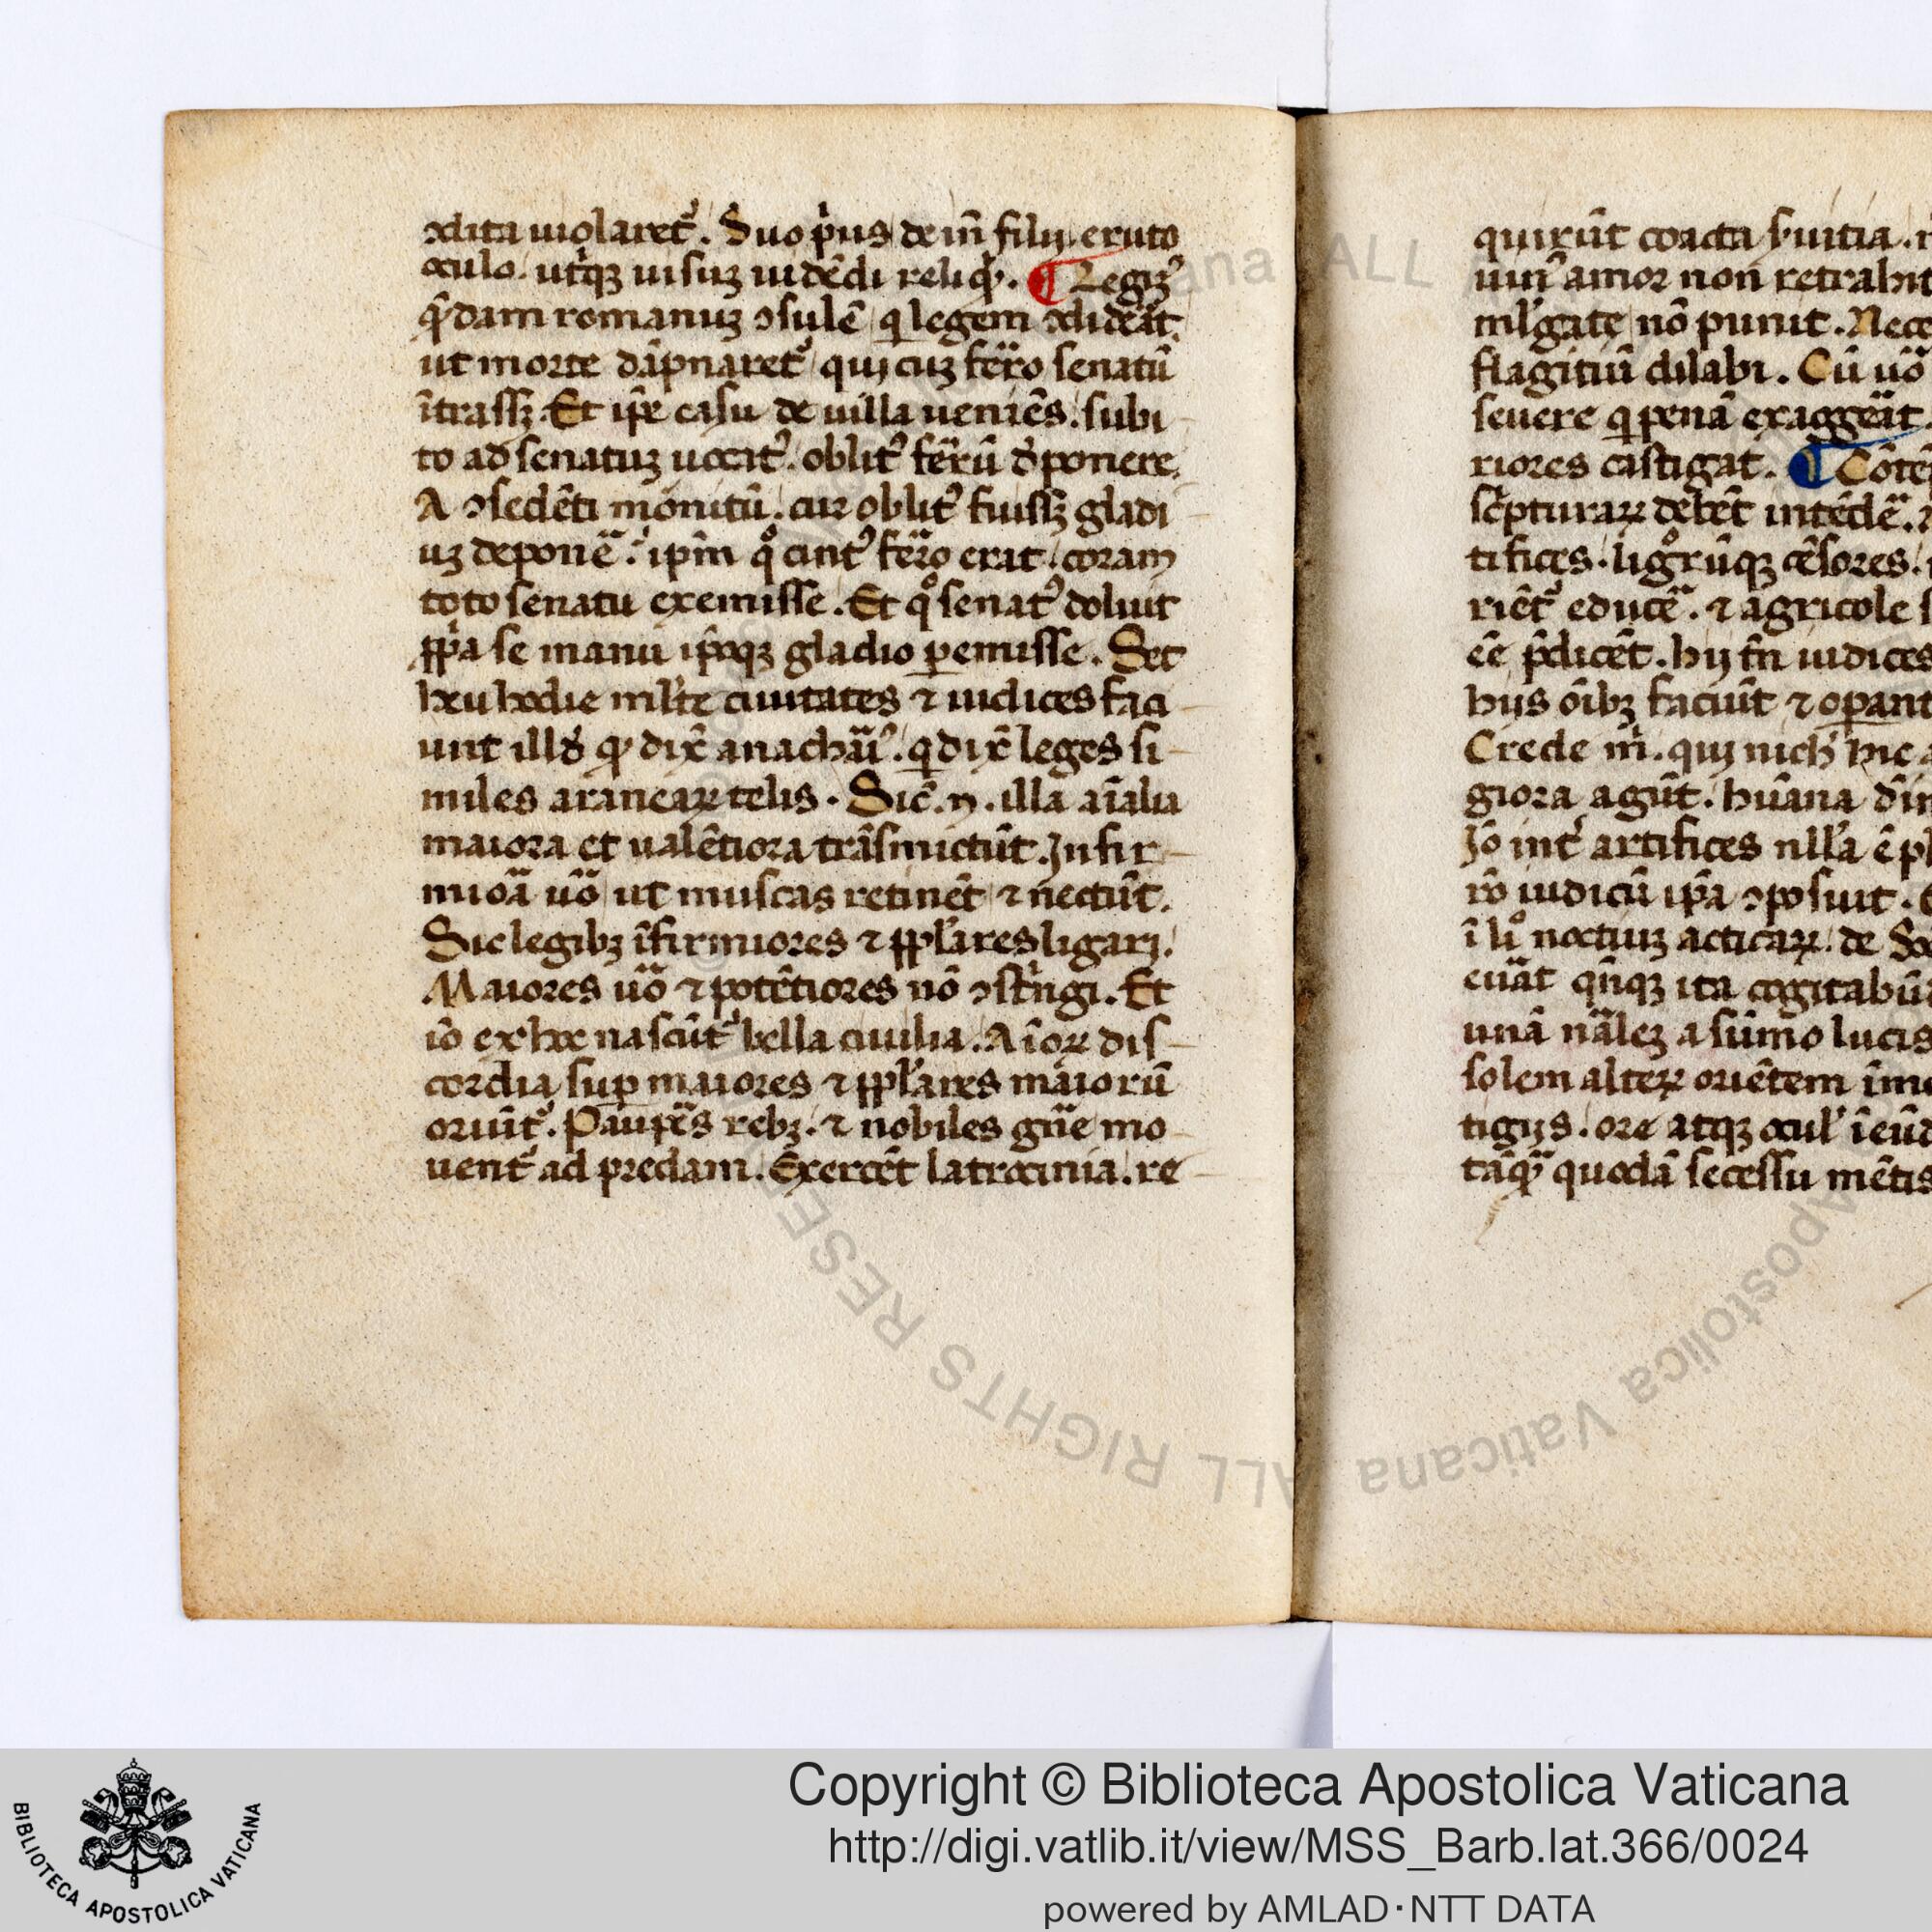 ↄdita uiolaret᷑. Suo pͥus de in̄ filij eruto
oculo. utͥqꝫ uisuꝫ uidēdi reliqͥt. ¶ Legiꝫ᷑
qͦdam romanuꝫ ↄsulē q legem ↄdideāt
ut morte dāpnaret᷑ qui cuꝫ fēro senatū
ītrassꝫ. Et ip̄e casu de uilla ueniēs. subi
to ad senatuꝫ uocatꝰ. oblitꝰ fērū dͤponere.
A ↄsedēti monitū. cur oblitꝰ fuissꝫ gladi
uꝫ deponē. ip̄m qͦ cintꝰ fēro erat. coram
toto senatu exemisse. Et qͦ senatꝰ doluit
ꝓpͥa se manu ip̄oqꝫ gladio ꝑemisse. Set
heu hodie ml̄te ciuitates ⁊ iudices faci
unt illd̛ qͩ dix̄ anachāꝰ. q dix̄ leges si
miles aranearꝝ telis. Sic̄ .n. illa aīalia
maiora et ualētiora trāsmictūt. Infir
miōa ūo ut muscas retinēt ⁊ nectūt.
Sic legibꝫ īfirmiores ⁊ ppl̄ares ligari.
Maiores ūo ⁊ potētiores nō ↄstͥngi. Et
iō ex hoc nascūt᷑ bella ciuilia. A īorꝝ dis
cordia suꝑ maiores ⁊ ppl̄ares maiorū
oriūt᷑. Pauꝑēs rebꝫ. ⁊ nobiles gn̄e mo
uent᷑ ad predam. Exercēt latrocinia. re
quirūt coacta suitia.
uin̄ amor non retrahit
ml̄gate nō punit. Nece
flagitiū dilabi. Cū ūo
seuere q penā exaggeāt.
riores castigat. ¶ Cōtē
scͥpturarꝝ debēt intēdē.
tifices. ligͦrūqꝫ cēsores.
riēt᷑ educē. ⁊ agricole
ēē p̄dicēt. hij tn̄ iudices
hijs oībꝫ faciūt ⁊ oꝑant
Crede m̄. qui nich̄ hic
giora agūt. hūana dīn
Iō int᷑ artifices nll̄a ē
ro iudiciū ip̄a ↄposuit.
ī liͦ noctiuꝫ acticarꝝ. de So
euāt qn̄qꝫ ita cogitabū
unā nālez a sūmo lucis
solem alterꝝ oriētem
tigijs. ore atqꝫ ocul̄ īeūd
tāqͣ quodā secessu mētis
Copyright © Biblioteca Apostolica Vaticana
http://digi.vatlib.it/view/MSS_Barb.lat.366/0024
powered by AMLAD·NTT DATA
BIBLIOTECA APOSTOLICA VATICANA